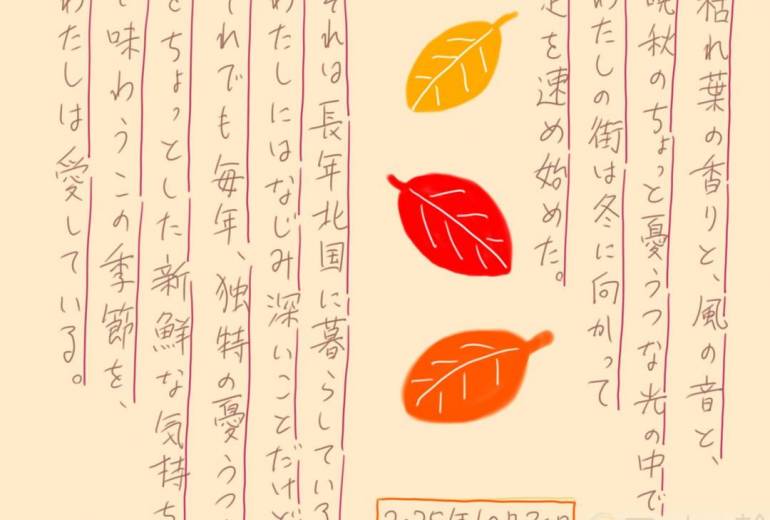 枯れ葉の香りと、風の音と、
晩秋のちょっと憂うつな光の中で
わたしの街は冬に向かって
足を速め始めた。
それは長年北国に暮らしている
わたしにはなじみ深いことだけど
それでも毎年、独特の憂うつ
とちょっとした新鮮な気持ち
で味わうこの季節を、
わたしは愛している。